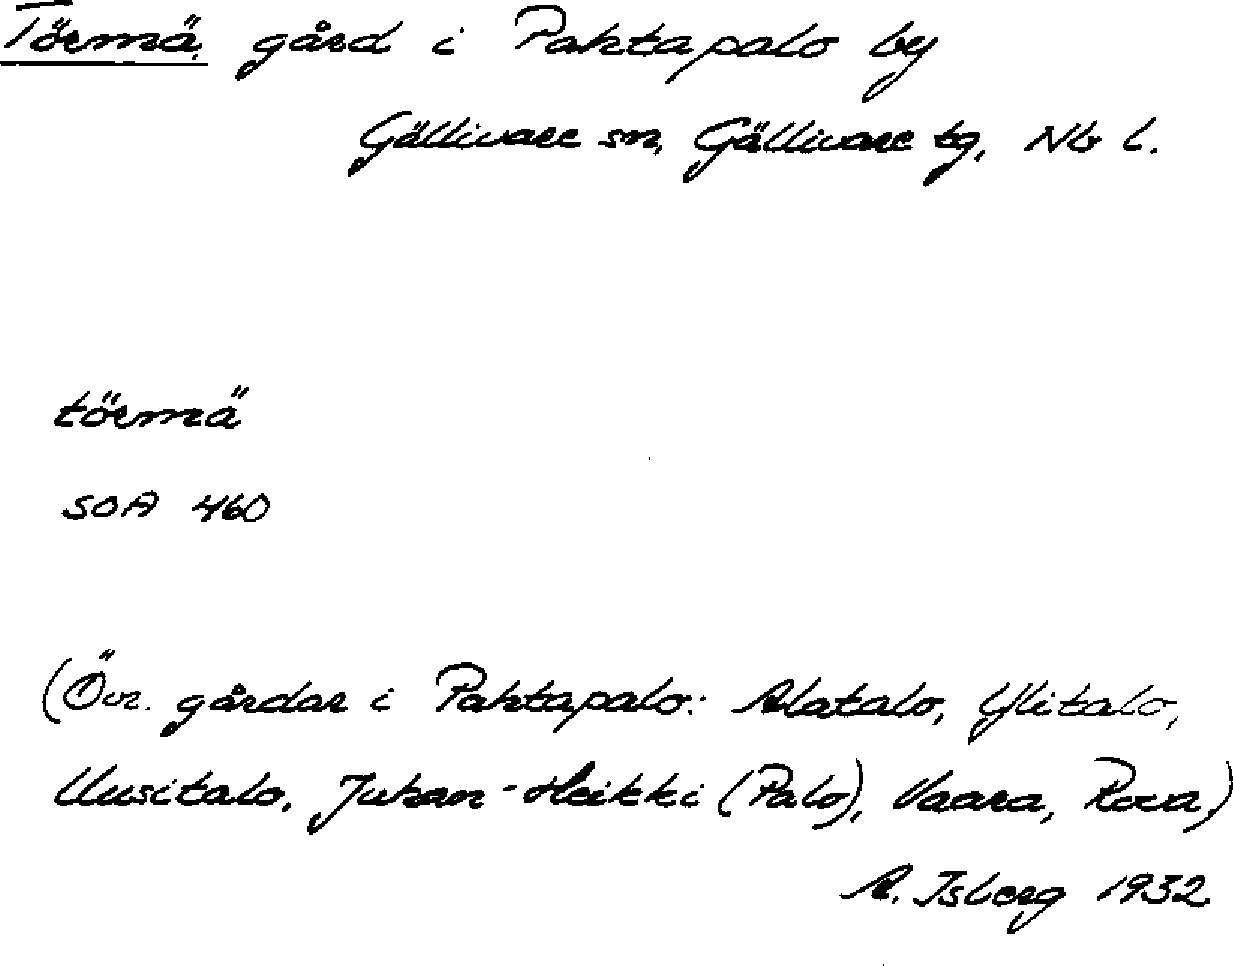 Törmä, gård i Pahtapalo by
Gällivare sn, Gällivare tg, Nb l.
törmä
SOA 460
(Övr. gårdar i Pahtapalo: Alatalo, Ylitalo,
Uusitalo, Juhan-Heikki (Palo), Vaara, Rova)
A. Isberg 1932